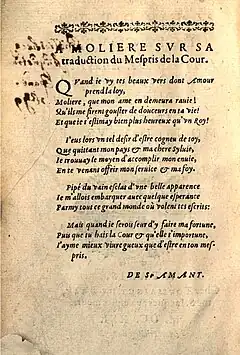 A MOLIERE SVR SA
traduction du Mespris de la Cour.
QVand ie vy tes beaux vers dont Amour
prend la loy,
Moliere, que mon ame en demeura rauie!
Qu'ils me firent gouster de douceurs en ta vie!
Et que ie t'estimay bien plus heureux qu'vn Roy!
I'eus lors vn tel desir d'estre cogneu de toy,
Que quittant mon pays & ma chere Syluie,
Ie trouuay le moyen d'accomplir mon enuie,
En te venant offrir mon seruice & ma foy.
Pipé du vain esclat d'vne belle apparence
Ie m'allois embarquer auec quelque esperance
Parmy tout ce grand monde où volent tes escrits:
Mais quand ie serois seur d'y faire ma fortune,
Puis que tu hais la Cour & qu'elle t'importune,
I'ayme mieux viure gueux que d'estre en ton mes-
pris.
DE St AMANT.